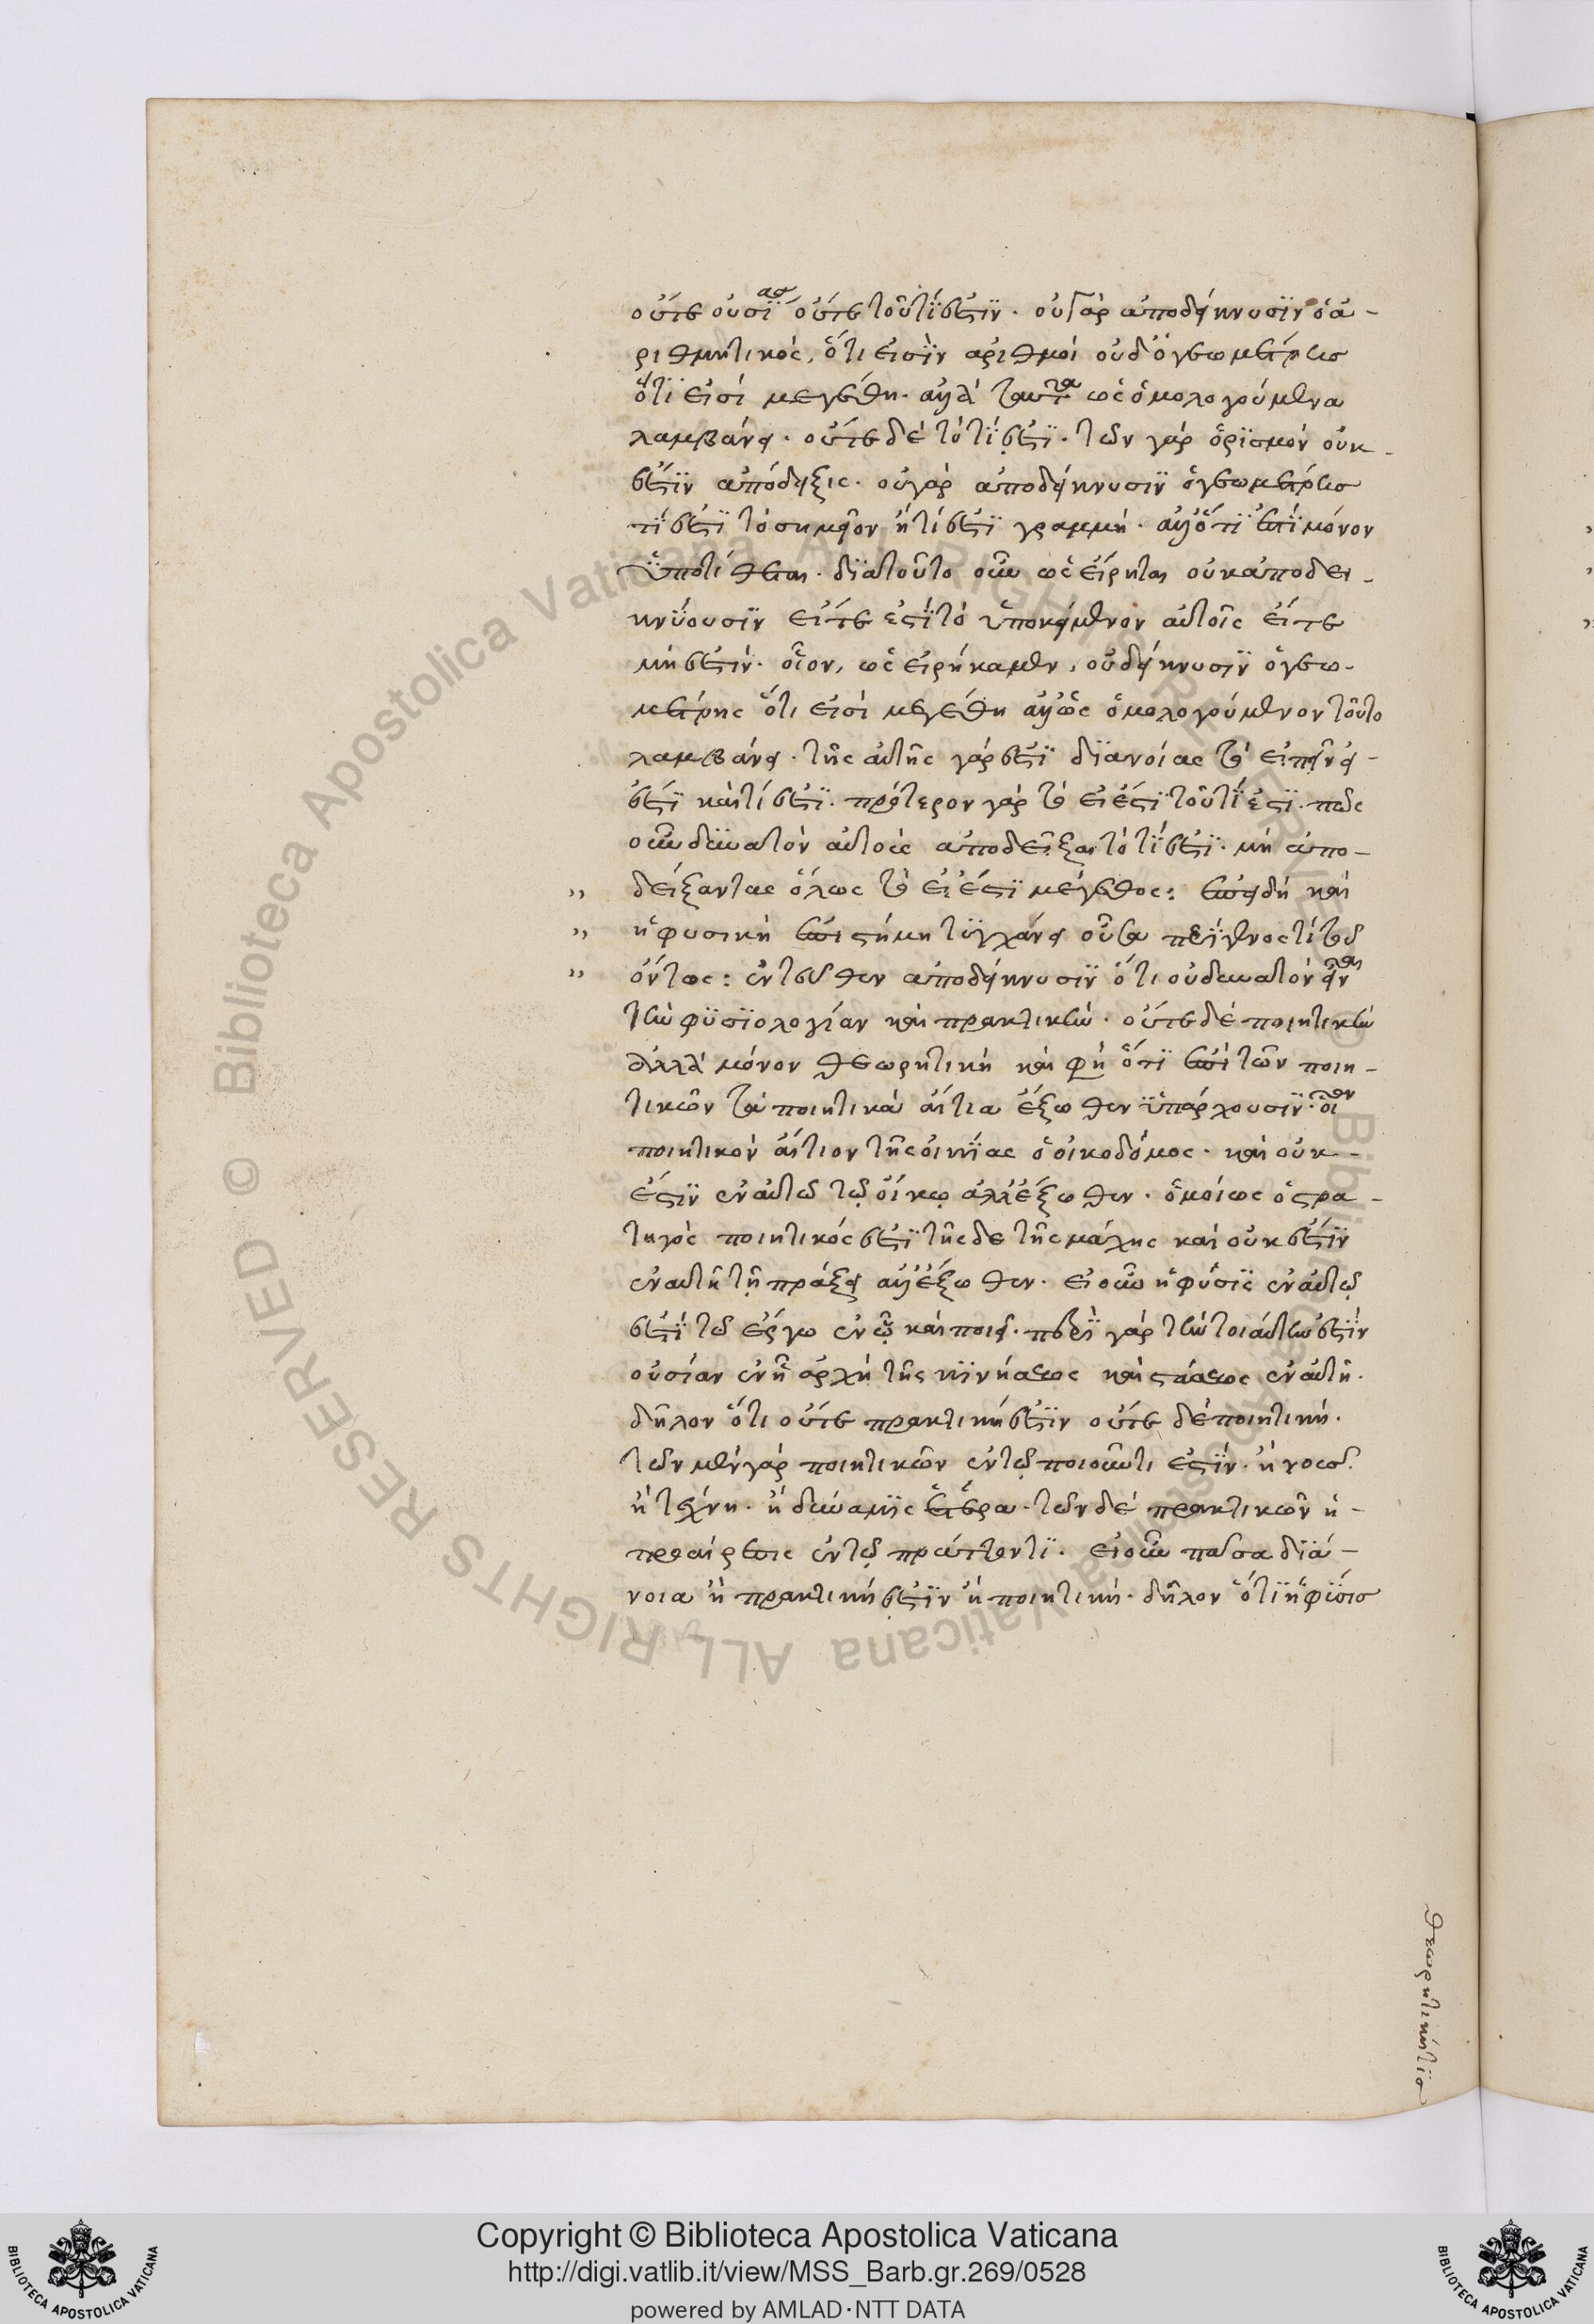 οὔτε οὐσίας οὔτε τοῦ τί ἐστιν. οὐ γὰρ ἀποδείκνυσιν ὁ ἀ-
ριθμητικός, ὅτι εἰσὶν ἀριθμοὶ οὐδ' ὁ γεωμέτρης
ὅτι εἰσὶ μεγέθη. ἀλλὰ ταῦτα ὡς ὁμολογούμενα
λαμβάνει. οὔτε δὲ τὸ τί ἐστι. τῶν γὰρ ὁρισμὸν οὐκ-
ἔστιν ἀπόδειξις. οὐ γὰρ ἀποδείκνυσιν ὁ γεωμέτρης
τί ἐστι τὸ σημεῖον ἢ τί ἐστι γραμμή. ἀλλ' ὅτι ἐστὶ μόνον
ὑποτίθεται. διατοῦτο οὖν ὡς εἴρηται οὐκ ἀποδει-
κνύουσιν εἴτε ἐστὶ τὸ ὑποκείμενον αὐτοῖς εἴτε
μή ἐστιν. οἷον, ὡς εἰρήκαμεν, οὐ δείκνυσιν ὁ γεω-
μέτρης ὅτι εἰσὶ μεγέθη ἀλλ' ὡς ὁμολογούμενον τοῦτο
λαμβάνει. τῆς αὐτῆς γάρ ἐστι διανοίας τὸ εἰπεῖν εἰ-
ἔστι καὶ τί ἐστι. πρότερον γὰρ τὸ εἰ ἔστι τοῦ τί ἐστι. πῶς
οὖν δυνατὸν αὐτοὺς ἀποδεῖξαι τὸ τί ἐστι. μὴ ἀπο-
,, δείξαντας ὅλως τὸ εἰ ἔστι μέγεθος: ἐπειδὴ καὶ
,, ἡ φυσικὴ ἐπιστήμη τυγχάνει οὖσα περὶ γένος τί τοῦ
,, ὄντος: ἐντεῦθεν ἀποδείκνυσιν ὅτι οὐ δυνατὸν εἶναι
τὴν φυσιολογίαν καὶ πρακτικὴν. οὔτε δὲ ποιητικὴν
ἀλλὰ μόνον θεωρητικὴ καὶ φη ὅτι ἐπὶ τῶν ποιη-
τικῶν τὰ ποιητικὰ αἴτια ἔξωθεν ὑπάρχουσιν. οἷον
ποιητικὸν αἴτιον τῆς οἰκίας ὁ οἰκοδόμος. καὶ οὐκ-
ἔστιν ἐν αὐτῶ τῷ οἴκῳ ἀλλ' ἔξωθεν. ὁμοίως ὁ στρα-
τηγὸς ποιητικός ἐστι τῆς δε τῆς μάχης καὶ οὐκ ἔστιν
ἐν αυτῆ τῇ πράξει ἀλλ' ἔξωθεν. εἰ οὖν ἡ φύσις ἐν αὐτῷ
ἐστι τῶ ἔργω ἐν ᾧ καὶ ποιεῖ. περὶ γὰρ τὴν τοιαύτην ἐστὶν
οὐσίαν ἐν ᾗ ἀρχὴ τῆς κινήσεως καὶ στάσεως ἐν αὐτῆ.
δῆλον ὅτι οὔτε πρακτική ἐστιν οὔτε δὲ ποιητική.
τῶν μὲν γὰρ ποιητικῶν ἐν τῷ ποιοῦντι ἐστίν. ἢ νοῦσ
ἢ τέχνη. ἢ δύναμις ἑτέρα. τῶν δὲ πρακτικῶν ἡ-
προαίρεσις ἐν τῷ πράττοντι. εἰ οὖν πᾶσα διά-
νοια ἢ πρακτική ἐστιν ἢ ποιητική. δῆλον ὅτι ἡ φύσισ
θεωρητικήτισ
Copyright © Biblioteca Apostolica Vaticana
http://digi.vatlib.it/view/MSS_Barb.gr.269/0528
powered by AMLAD·NTT DATA
BIBLIOTECA APOSTOLICA VATICANA
BIBLIOTECA APOSTOLICA VATICANA
© Biblioteca Apostolica Vaticana ALL RIGHTS RESERVED
© Biblioteca Apostolica Vaticana ALL RIGHTS RESERVED